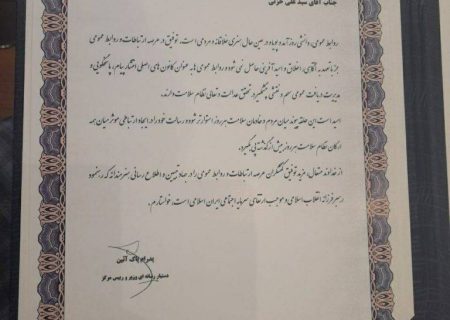 جناب آقای سید علی خزایی
روابط عمومی، دانشی روزآمد و پویا و در عین حال هنری خلاقانه و مردمی است. توفیق در عرصه ارتباطات و روابط عمومی
جز با تعهد، آگاهی، اخلاق و امید آفرینی حاصل نمی شود و روابط عمومی ها به عنوان کانون های اصلی انتشار پیام، پاسخگویی و
مدیریت دریافت عمومی سهم و نقشی چشمگیر در تحقق عدالت و تعالی نظام سلامت دارند.
امید است این حلقه پیوند میان مردم و خادمان سلامت هر روز استوارتر شود و رسالت خود را در ایجاد ارتباطی موثر میان همه
ارکان نظام سلامت هر روز بیش از گذشته پی بگیرد.
از خداوند متعال، مزید توفیق کنشگران عرصه ارتباطات و روابط عمومی را در جهاد تبیین و اطلاع رسانی هنرمندانه که رهنمود
رهبر فرزانه انقلاب اسلامی و موجب ارتقای سرمایه اجتماعی ایران اسلامی است، خواستارم.
پدرام پاک آئین
دستیار رسانه ای وزیر و رییس مرکز